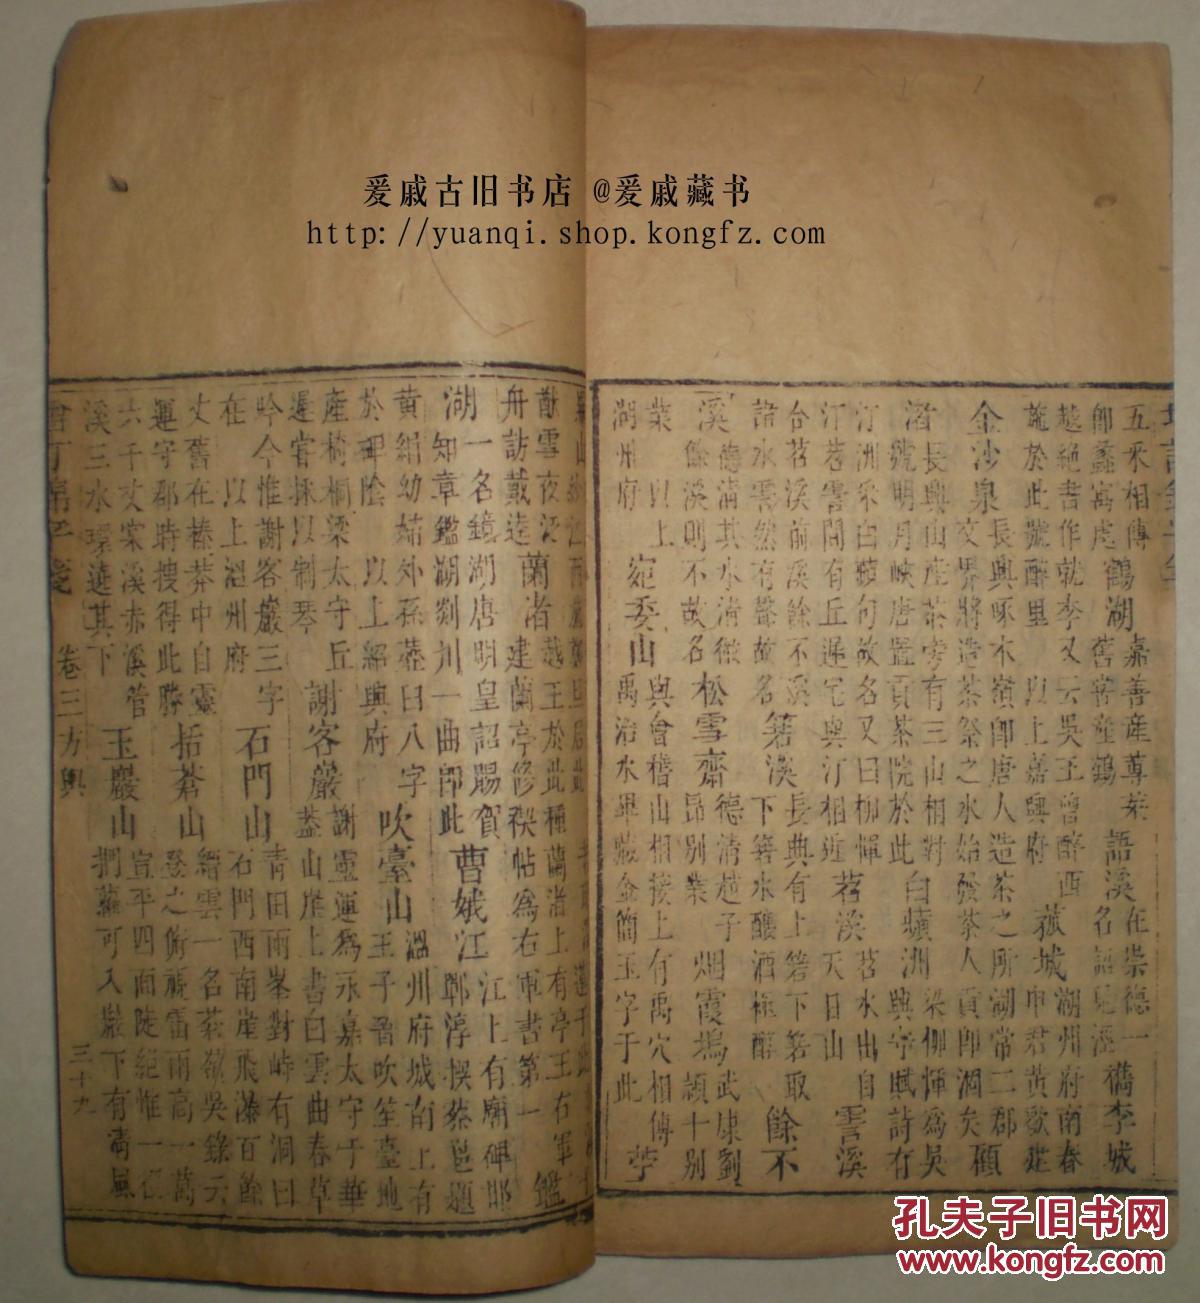 爰戚古旧书店 @爰戚藏书
http://yuanqi.shop.kongfz.com
五采相傳 鶴湖 嘉善產蓴菜 語溪 在崇德一
即蠡寓處 舊嘗產鶴 名語兒涇 檇李城
越絕書作就李又云吳王曾醉西 湖州府南春
施於此號醉里 以上嘉興府 菰城 申君黃歇建
金沙泉 長興啄木嶺即唐人造茶之所湖常二郡
文界將造茶祭之水始發茶人貢即涸矣 顧
渚 長興山產茶旁有三山相對 白蘋洲 梁柳惲為吳
號明月峽唐置貢茶院於此 興守賦詩有
汀洲采白蘋句故名又曰柳惲 苕溪 苕水出自
汀苕霅間有丘遲宅與汀相近 天目山 霅溪
合苕溪前溪餘不溪 箬溪 長興有上箬下箬取
諸水霅然有聲故名 下箬水釀酒極醇 餘不
溪 德清其水清徹 松雪齋 德清趙子 烟霞塢 武康劉
餘溪則不故名 昂別業 頴十別
業 以上 宛委山 與會稽山相接上有禹穴相傳
湖州府 禹治水畢藏金簡玉字于此 苧
猷雪夜泛 蘭渚 越王於此種蘭渚上有亭王右軍 鑑
舟訪戴逵 建蘭亭修禊帖為右軍書第一
湖 一名鏡湖唐明皇詔賜賀 曹娥江 江上有廟碑邯
知章鑑湖剡川一曲即此 鄲淳撰蔡邕題
黃絹幼婦外孫虀臼八字 吹臺山 溫州府城南上有
於碑陰 以上紹興府 王子晉吹笙臺地
產椅桐梁太守丘 謝客巖 謝靈運為永嘉太守于華
遲嘗採以制琴 蓋山崖上書白雲曲春草
吟今惟謝客巖三字 石門山 青田兩峯對峙有洞曰
在 以上溫州府 石門西南崖飛瀑百餘
丈舊在榛莽中自靈 括蒼山 縉雲一名蒼嶺吳錄云
運守郡時搜得此勝 登之俯視雷雨高一萬
六千丈棠溪赤溪管 玉巖山 宣平四面陡絕惟一徑
溪三水環遶其下 捫蘿可入巖下有清風
卷三方輿 三十九
孔夫子旧书网
www.kongfz.com